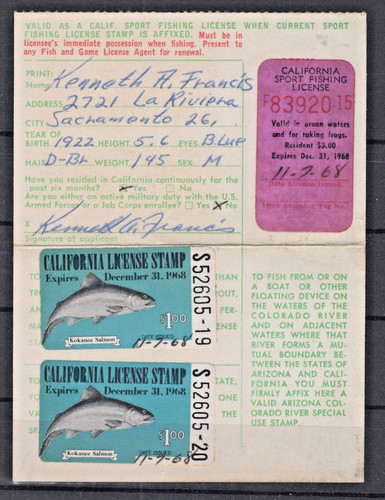 VALID AS A CALIF. SPORT FISHING LICENSE WHEN CURRENT SPORT
FISHING LICENSE STAMP IS AFFIXED. Must be in
licensee's immediate possession when fishing. Present to
any Fish and Game License Agent for renewal.
PRINT:
Name Kenneth A. Francis
ADDRESS 2721 La Riviera
CITY Sacramento 26,
YEAR OF
BIRTH 1922 HEIGHT 5.6 EYES Blue
HAIR D-Br WEIGHT 145 SEX M
Have you resided in California continuously for the
past six months? Yes No
Are you either on active military duty with the U.S.
Armed Forces or a Job Corps enrollee? Yes No
X Kenneth A. Francis
Signature of applicant
CALIFORNIA
SPORT FISHING
LICENSE
F83920 15
Valid in ocean waters
and for taking frogs.
Resident $3.00
Expires Dec. 31, 1968
11-9-68
Date License Issued
CALIFORNIA LICENSE STAMP
Expires December 31, 1968
$1.00
Kokanee Salmon
DATE ISSUED
11-9-68
S52605-19
CALIFORNIA LICENSE STAMP
Expires December 31, 1968
$1.00
Kokanee Salmon
DATE ISSUED
11-9-68
S52605-20
TO FISH FROM OR ON
A BOAT OR OTHER
FLOATING DEVICE ON
THE WATERS OF THE
COLORADO RIVER
AND ON ADJACENT
WATERS WHERE THAT
RIVER FORMS A MU-
TUAL BOUNDARY BE-
TWEEN THE STATES OF
ARIZONA AND CALI-
FORNIA YOU MUST
FIRMLY AFFIX HERE
A VALID ARIZONA CO-
LORADO RIVER SPECIAL
USE STAMP.